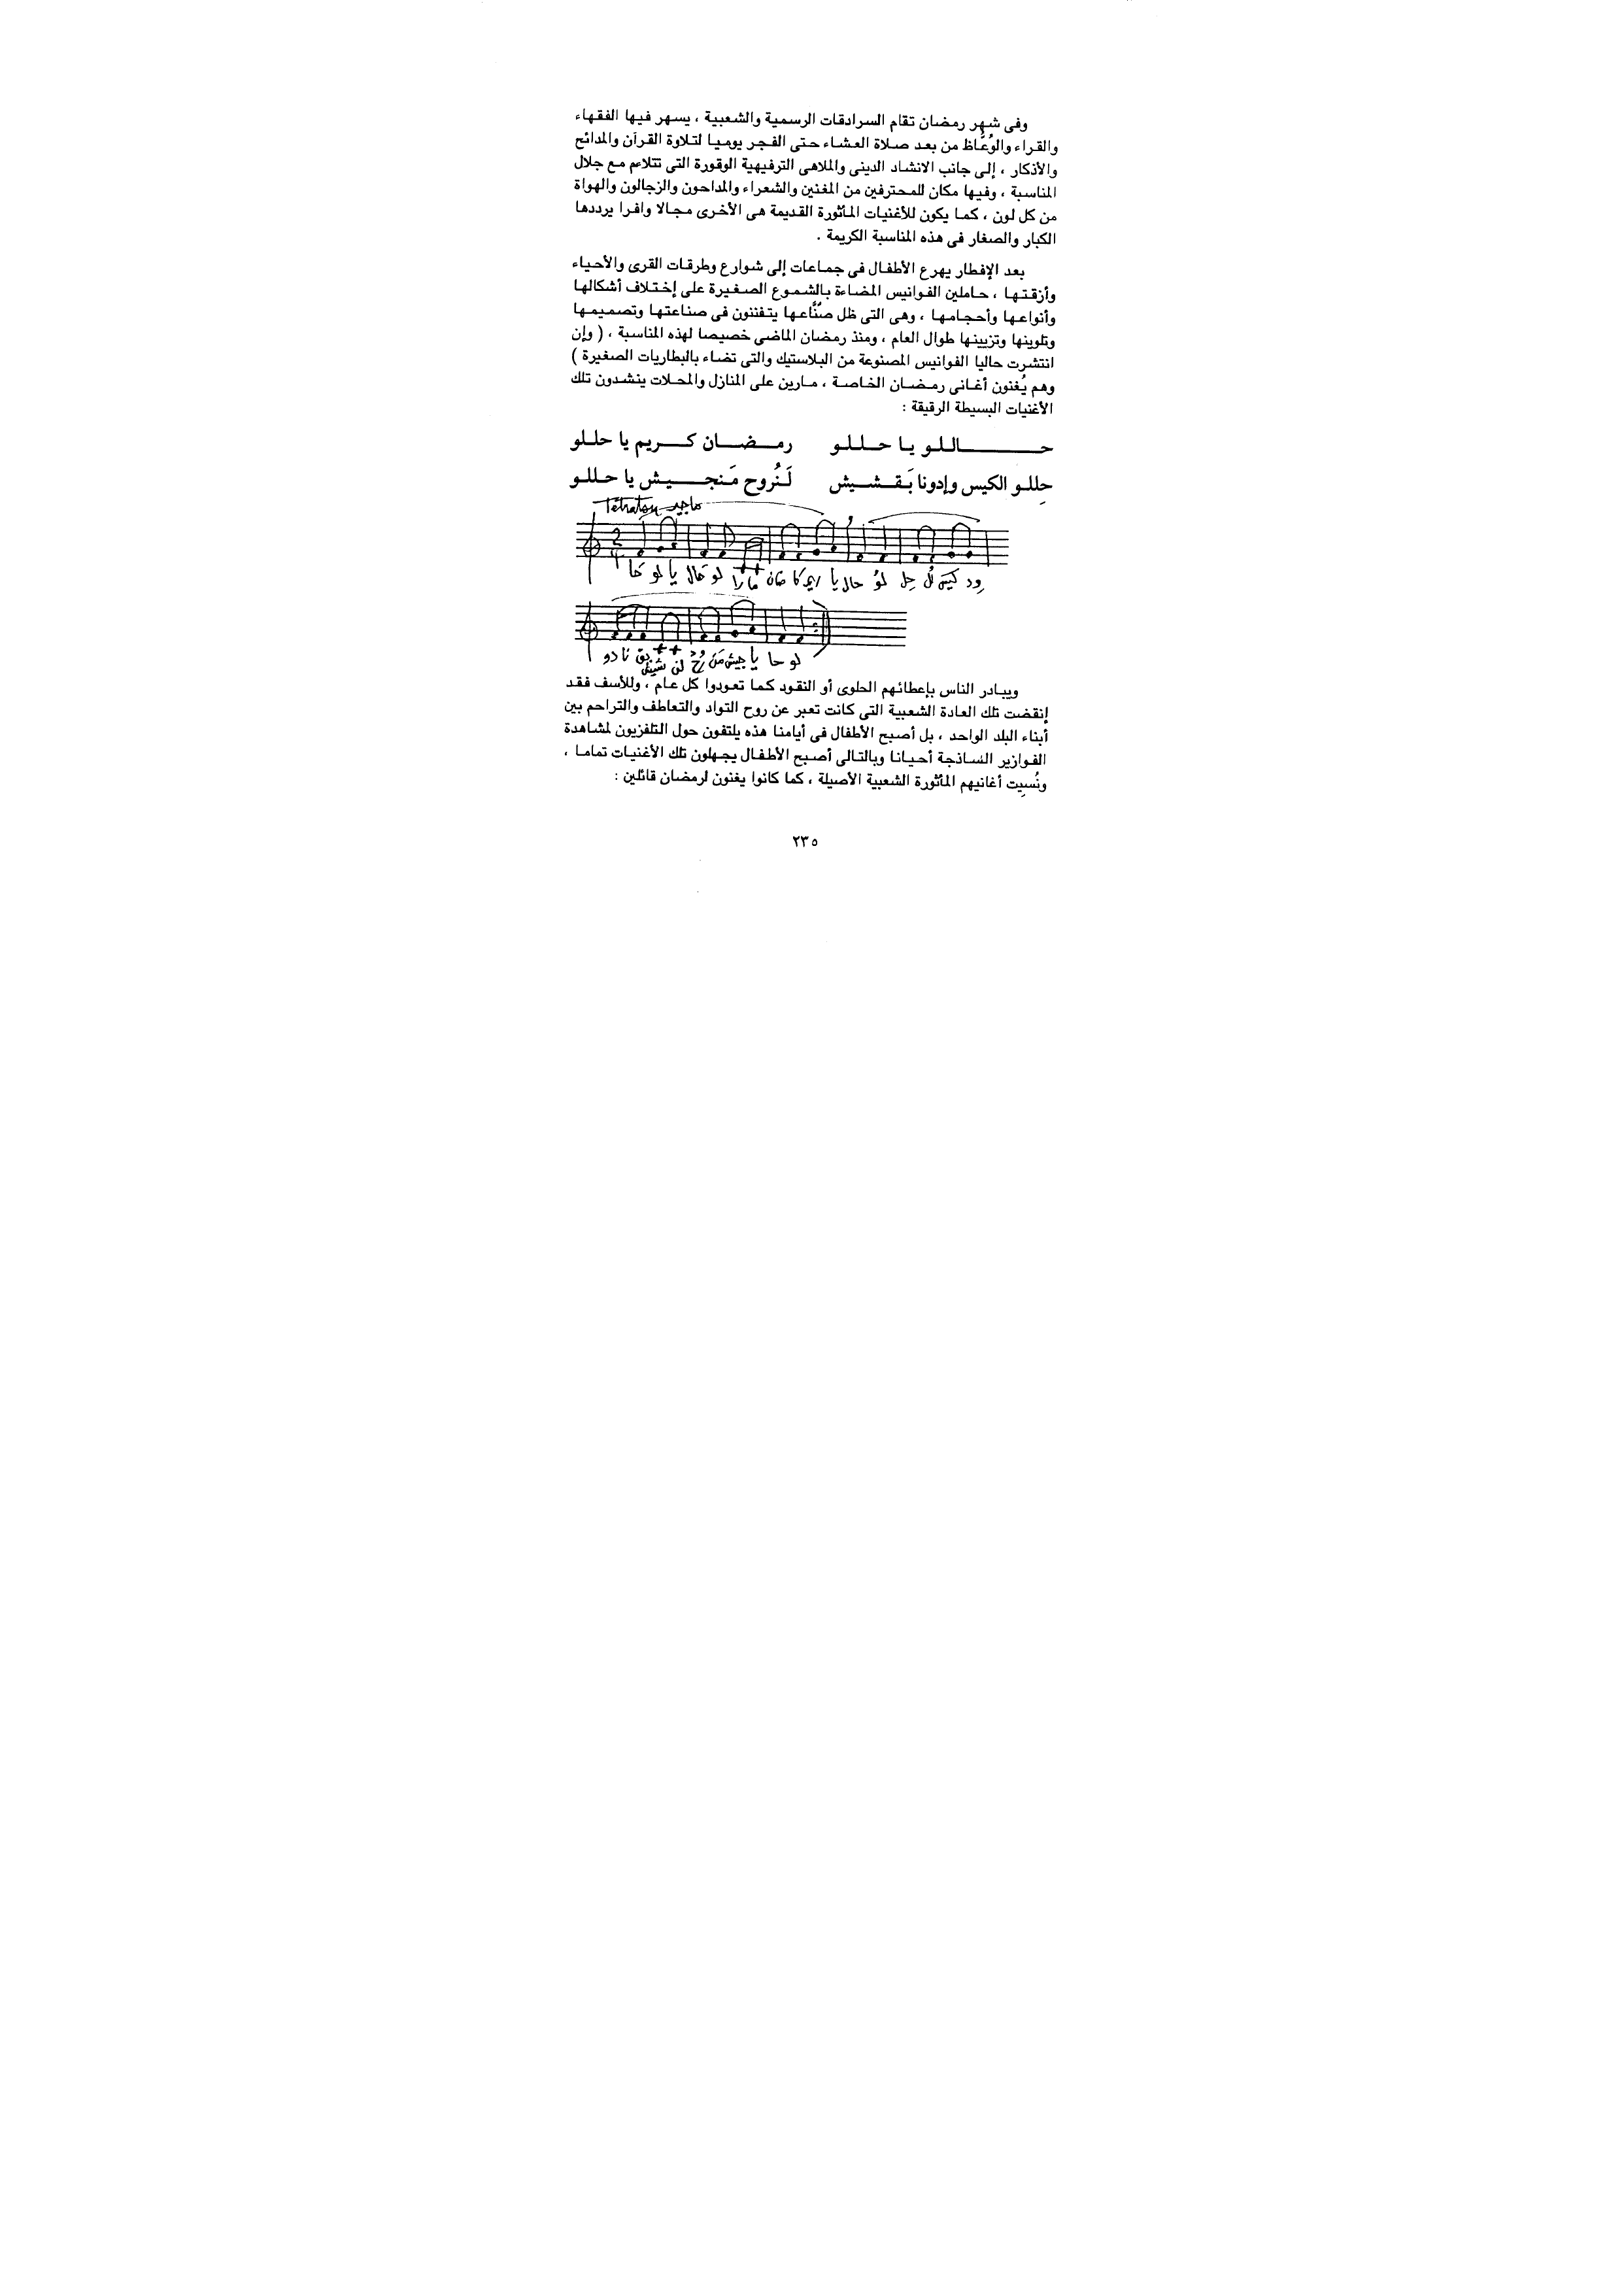 وفى شهر رمضان تقام السرادقات الرسمية والشعبية ، يسهر فيها الفقهاء
والقراء والوُعَّاظ من بعد صلاة العشاء حتى الفجر يوميا لتلاوة القرآن والمدائح
والأذكار ، إلى جانب الانشاد الدينى والملاهى الترفيهية الوقورة التى تتلاءم مع جلال
المناسبة ، وفيها مكان للمحترفين من المغنين والشعراء والمداحون والزجالون والهواة
من كل لون ، كما يكون للأغنيات المأثورة القديمة هى الأخرى مجالا وافرا يرددها
الكبار والصغار فى هذه المناسبة الكريمة .
بعد الإفطار يهرع الأطفال فى جماعات إلى شوارع وطرقات القرى والأحياء
وأزقتها ، حاملين الفوانيس المضاءة بالشموع الصغيرة على إختلاف أشكالها
وأنواعها وأحجامها ، وهى التى ظل صُنَّاعها يتفننون فى صناعتها وتصميمها
وتلوينها وتزيينها طوال العام ، ومنذ رمضان الماضى خصيصا لهذه المناسبة ، ( وإن
انتشرت حاليا الفوانيس المصنوعة من البلاستيك والتى تضاء بالبطاريات الصغيرة )
وهم يُغنون أغانى رمضان الخاصة ، مارين على المنازل والمحلات ينشدون تلك
الأغنيات البسيطة الرقيقة :
حـــــــاللو يا حـللو رمـضـان كـــريم يا حللو
حِللو الكيس وإدونا بَـقـشـيش لَنُروح مَنجـــيـش يا حـللو
Tetraton ماجير
حا لو يا حال لو را ما ضان كا ريم يا حال لو حِل لُل كيس ود
دو نا بق شيش لن رُوح مَن جيش يا حا لو
ويبادر الناس بإعطائهم الحلوى أو النقود كما تعودوا كل عام ، وللأسف فقد
إنقضت تلك العادة الشعبية التى كانت تعبر عن روح التواد والتعاطف والتراحم بين
أبناء البلد الواحد ، بل أصبح الأطفال فى أيامنا هذه يلتفون حول التلفزيون لمشاهدة
الفوازير الساذجة أحيانا وبالتالى أصبح الأطفال يجهلون تلك الأغنيات تماما ،
ونُسيِت أغانيهم المأثورة الشعبية الأصيلة ، كما كانوا يغنون لرمضان قائلين :
٢٣٥